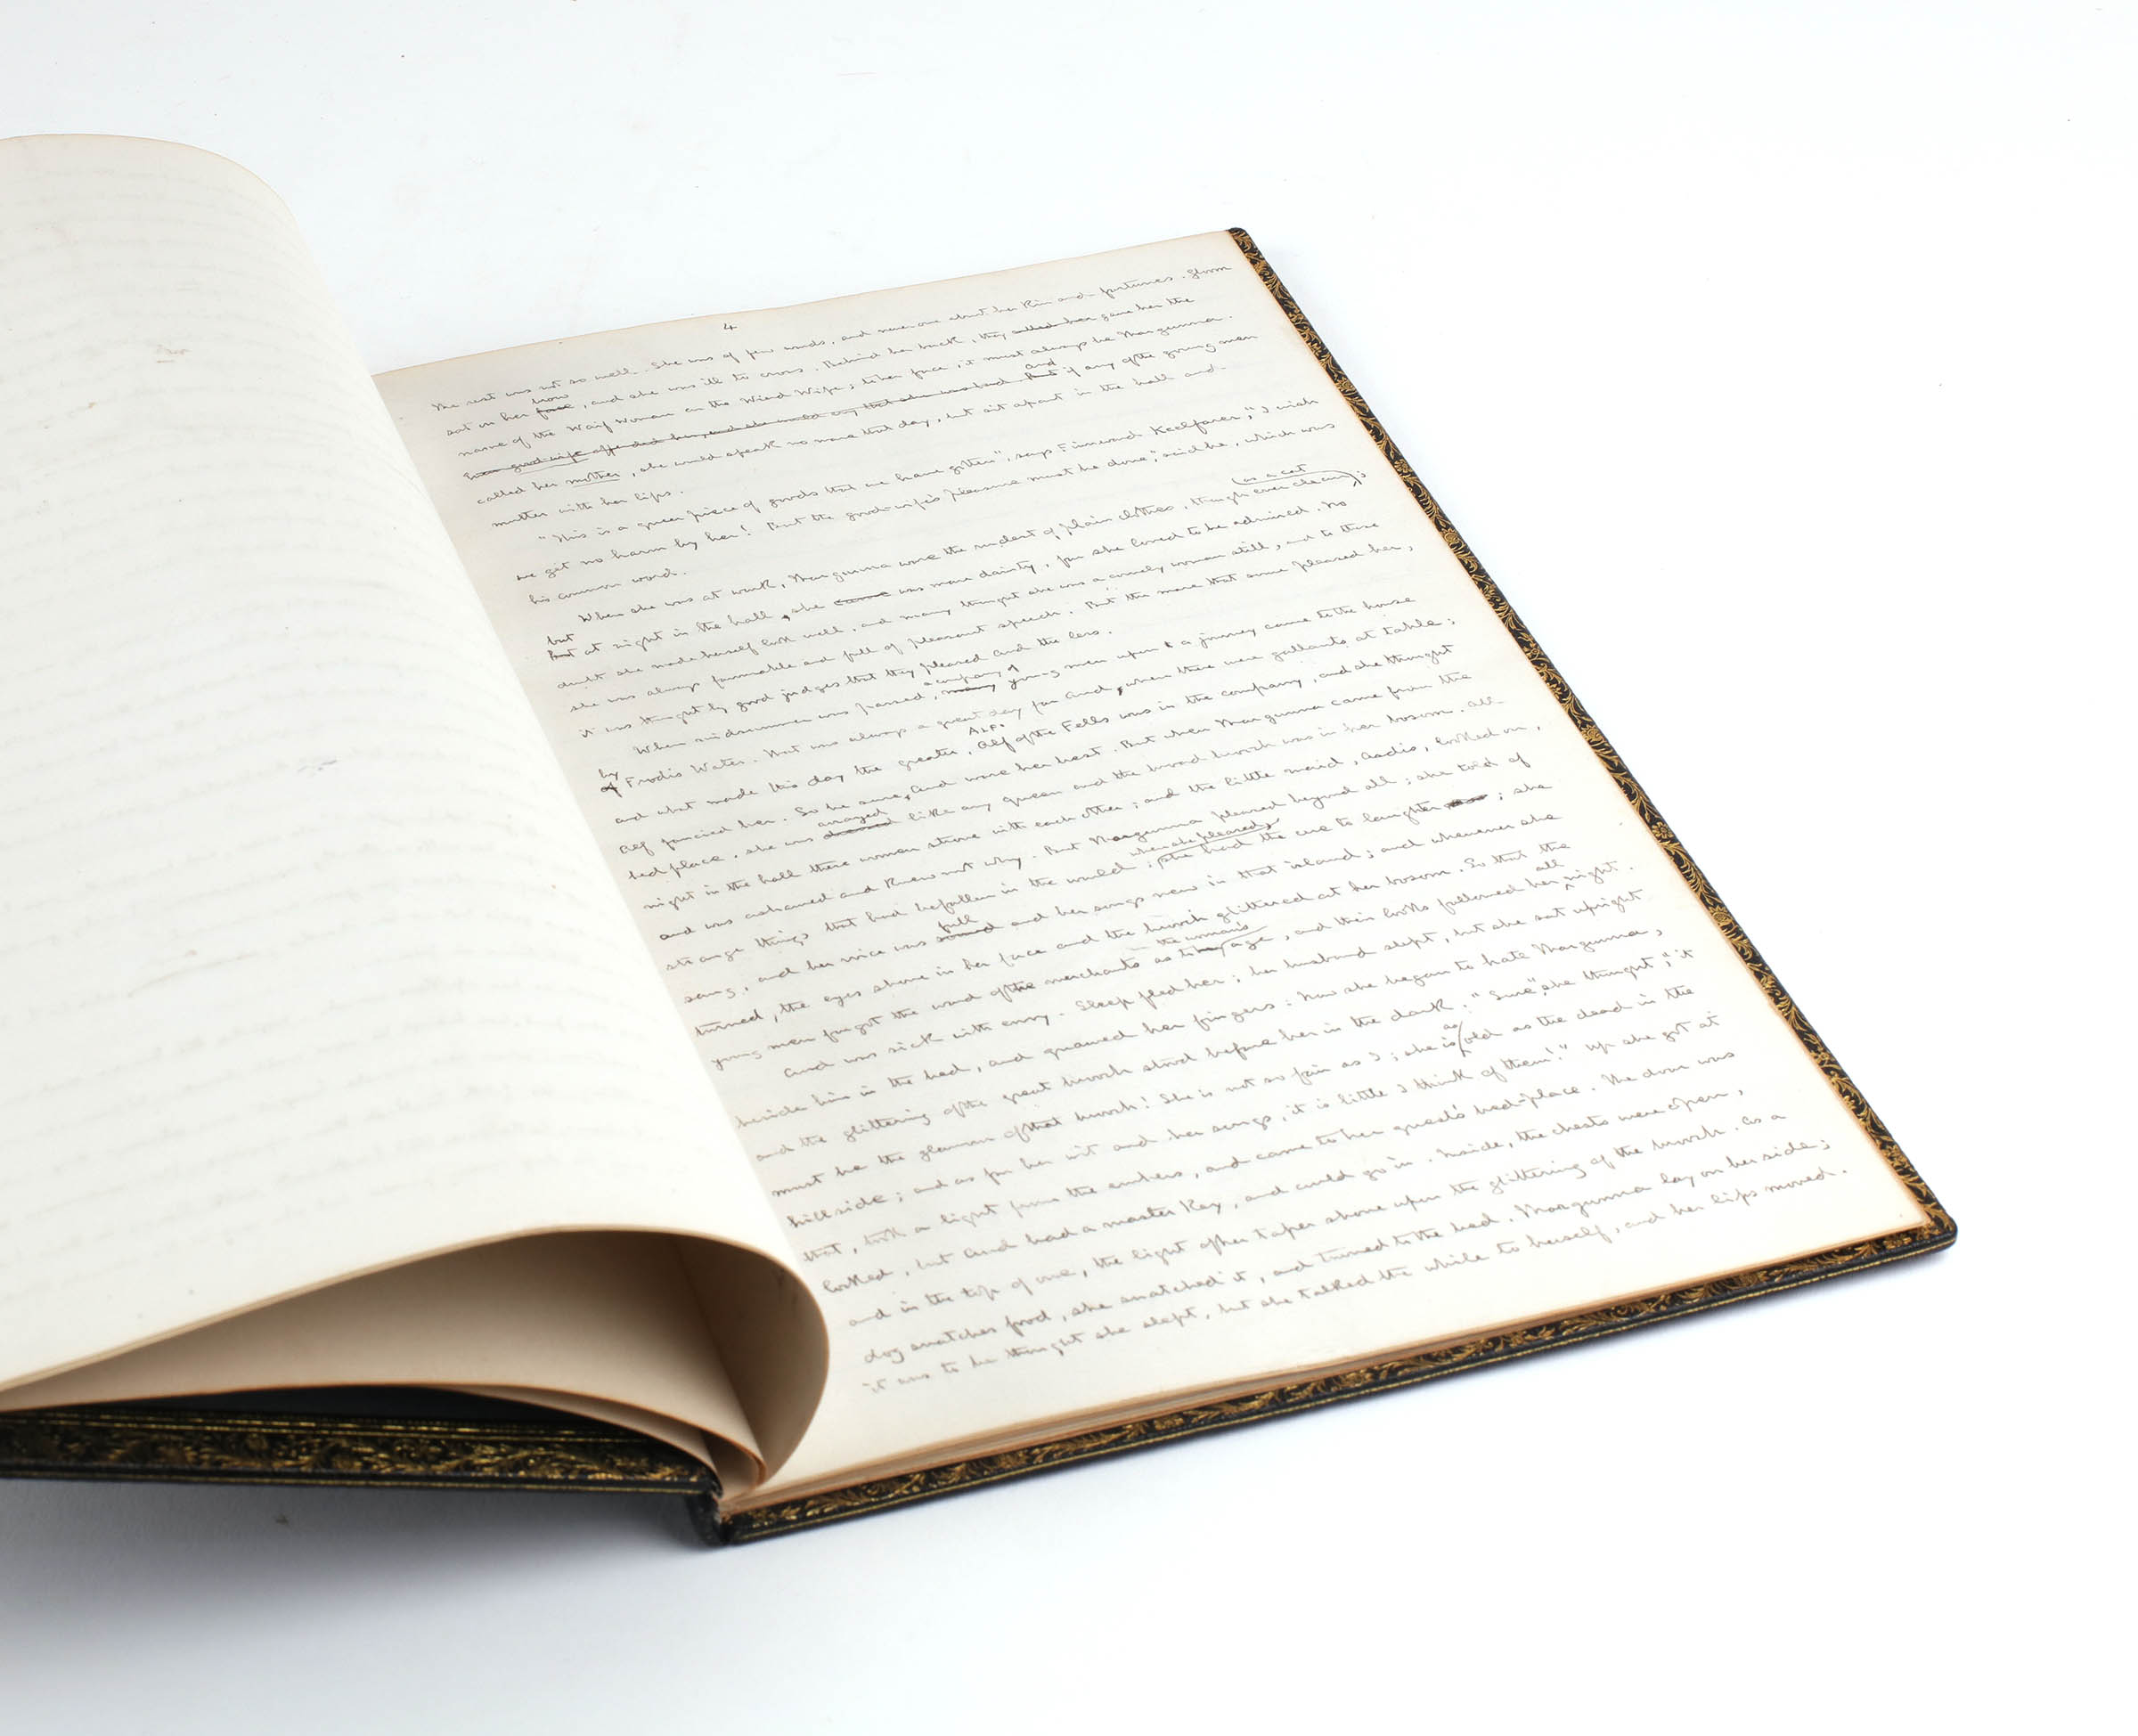 4
The rest was not so well. She was of few words, and never one about her kin and fortunes. Gloom
brow
sat on her face, and she was ill to cross. Behind her back, they called her gave her the
name of the Waif Woman or the Wind Wife; to her face, it must always be Thorgunna.
and
good wife offended her, and she would say that she was But if any of the young men
called her mother, she would speak no more that day, but sit apart in the hall and
mutter with her lips.
"This is a queer piece of goods that we have gotten", says Finnward Keelfarer; "I wish
we get no harm by her! But the good-wife's pleasure must be done," said he, which was
his common word.
(as a cat
When she was at work, Thorgunna wore the rudest of plain clothes, though ever clean);
but
But at night in the hall, she was more dainty, for she loved to be admired. No
doubt she made herself look well, and many thought she was a comely woman still, and to those
she was always favourable and full of pleasant speech. But the more that some pleased her,
it was thought by good judges that they pleased Aud the less.
a company of
When midsummer was passed, many young men upon a journey came to the house
by
of Frodis Water. That was always a great day for Aud, when there were gallants at table;
ALF.
and what made this day the greater, Alf of the Fells was in the company, and she thought
Alf fancied her. So be sure, Aud wore her best. But when Thorgunna came from the
arrayed
bed place, she was dressed like any queen and the broad brooch was in her bosom. All
night in the hall these women strove with each other; and the little maid, Asdis, looked on,
and was ashamed and knew not why. But Thorgunna pleased beyond all; she told of
when she pleased,
strange things that had befallen in the world; she had the cue to laughter; she
full
sang, and her voice was and her songs new in that island; and whenever she
turned, the eyes shone in her face and the brooch glittered at her bosom. So that the
the woman's all
young men forgot the word of the merchants as to age, and their looks followed her night.
Aud was sick with envy. Sleep fled her; her husband slept, but she sat upright
beside him in the bed, and gnawed her fingers. Now she began to hate Thorgunna,
and the glittering of the great brooch stood before her in the dark. "Sure", she thought, "it
as
must be the glamour of that brooch! She is not so fair as I; she is old as the dead in the
hillside; and as for her wit and her songs, it is little I think of them!" Up she got at
that, took a light from the embers, and came to her guest's bed-place. The door was
locked, but Aud had a master key, and could go in. Inside, the chests were open,
and in the top of one, the light of her taper shone upon the glittering of the brooch. As a
dog snatches food, she snatched it, and turned to the bed. Thorgunna lay on her side;
it was to be thought she slept, but she talked the while to herself, and her lips moved.